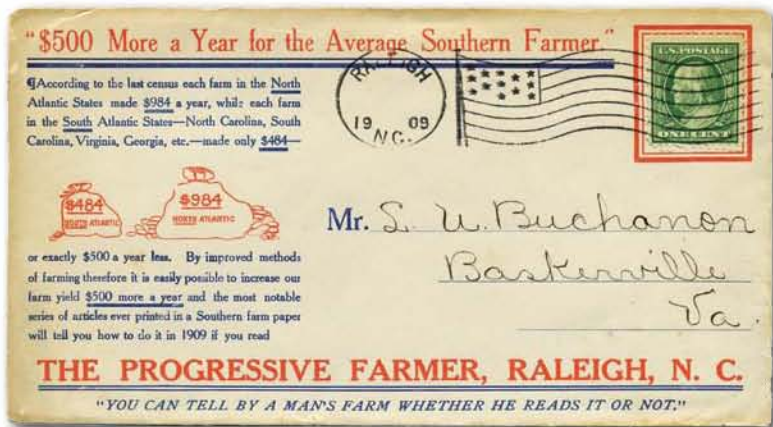 "$500 More a Year for the Average Southern Farmer."
¶According to the last census each farm in the North
Atlantic States made $984 a year, while each farm
in the South Atlantic States—North Carolina, South
Carolina, Virginia, Georgia, etc.—made only $484—
RALEIGH
19 09
N.C.
U.S. POSTAGE
ONE CENT
$484
SOUTH ATLANTIC
$984
NORTH ATLANTIC
or exactly $500 a year less. By improved methods
of farming therefore it is easily possible to increase our
farm yield $500 more a year and the most notable
series of articles ever printed in a Southern farm paper
will tell you how to do it in 1909 if you read
Mr. S. W. Buchanon
Baskerville
Va.
THE PROGRESSIVE FARMER, RALEIGH, N. C.
"YOU CAN TELL BY A MAN'S FARM WHETHER HE READS IT OR NOT."